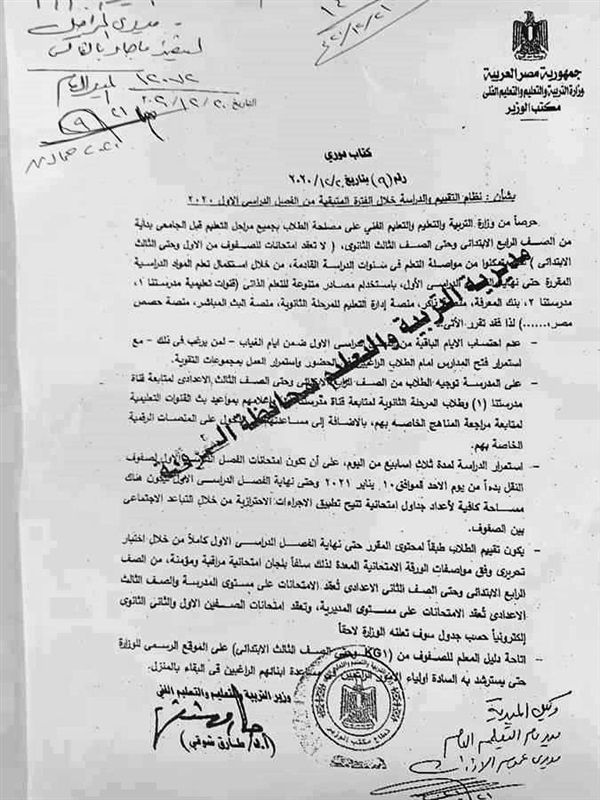 جمهورية مصر العربية
وزارة التربية والتعليم والتعليم الفنى
مكتب الوزير
كتاب دوري
رقم (٩) بتاريخ ٢٠٢٠/١٢/٢٠
بشأن : نظام التقييم والدراسة خلال الفترة المتبقية من الفصل الدراسى الاول ٢٠٢٠
حرصاً من وزارة التربية والتعليم والتعليم الفني على مصلحة الطلاب بجميع مراحل التعليم قبل الجامعى بداية
من الصف الرابع الابتدائى وحتى الصف الثالث الثانوى، ( لا تعقد امتحانات للصفوف من الاول وحتى الثالث
الابتدائى ) من مواصلة التعلم فى سنوات الدراسة القادمة، من خلال استكمال تعلم المواد الدراسية
المقررة حتى نهاية الدراسي الأول، باستخدام مصادر متنوعة للتعلم الذاتى (قنوات تعليمية مدرستنا ١،
مدرستنا ٢، بنك المعرفة، منصة إدارة التعليم للمرحلة الثانوية، منصة البث المباشر، منصة حصص
مصر،......) لذا فقد تقرر الأتى:
- عدم احتساب الايام الباقية من الدراسى الاول ضمن ايام الغياب - لمن يرغب فى ذلك - مع
استمرار فتح المدارس امام الطلاب الراغبين الحضور واستمرار العمل بمجموعات التقوية.
- على المدرسة توجيه الطلاب من الصف الرابع وحتى الصف الثالث الاعدادى لمتابعة قناة
مدرستنا (١) وطلاب المرحلة الثانوية لمتابعة قناة بمواعيد بث القنوات التعليمية
لمتابعة مراجعة المناهج الخاصه بهم، بالاضافة إلى على المنصات الرقمية
الخاصة بهم.
- استمرار الدراسة لمدة ثلاث اسابيع من اليوم، على أن تكون امتحانات الفصل الاول لصفوف
النقل بدءاً من يوم الأحد الموافق ١٠ يناير ٢٠٢١ وحتى نهاية الفصل الدراسى الاول هناك
مساحة كافية لأعداد جداول امتحانية تتيح تطبيق الاجراءات الاحترازية من خلال التباعد الاجتماعى
بين الصفوف.
- يكون تقييم الطلاب طبقاً لمحتوى المقرر حتى نهاية الفصل الدراسى الاول كاملاً من خلال اختبار
تحريرى وفق مواصفات الورقة الامتحانية المعدة لذلك سلفاً بلجان امتحانية مراقبة ومؤمنة، من الصف
الرابع الابتدائى وحتى الصف الثانى الاعدادى تُعقد الامتحانات على مستوى المدرسة والصف الثالث
الاعدادى تُعقد الامتحانات على مستوى المديرية، وتعقد امتحانات الصفين الاول والثانى الثانوى
إلكترونياً حسب جدول سوف تعلنه الوزارة لاحقاً
- اتاحة دليل المعلم للصفوف من (KG1 وحتى الصف الثالث الابتدائى) على الموقع الرسمى للوزارة
حتى يسترشد به السادة اولياء الامور الراغبين مساعدة ابنائهم الراغبين فى البقاء بالمنزل.
وزير التربية والتعليم والتعليم الفني
(أ.د/ طارق شوقي)
مديرية التربية والتعليم بمحافظة الشرقية
قطاع مكتب الوزير
وكيل المديرية
مدير عام التعليم العام